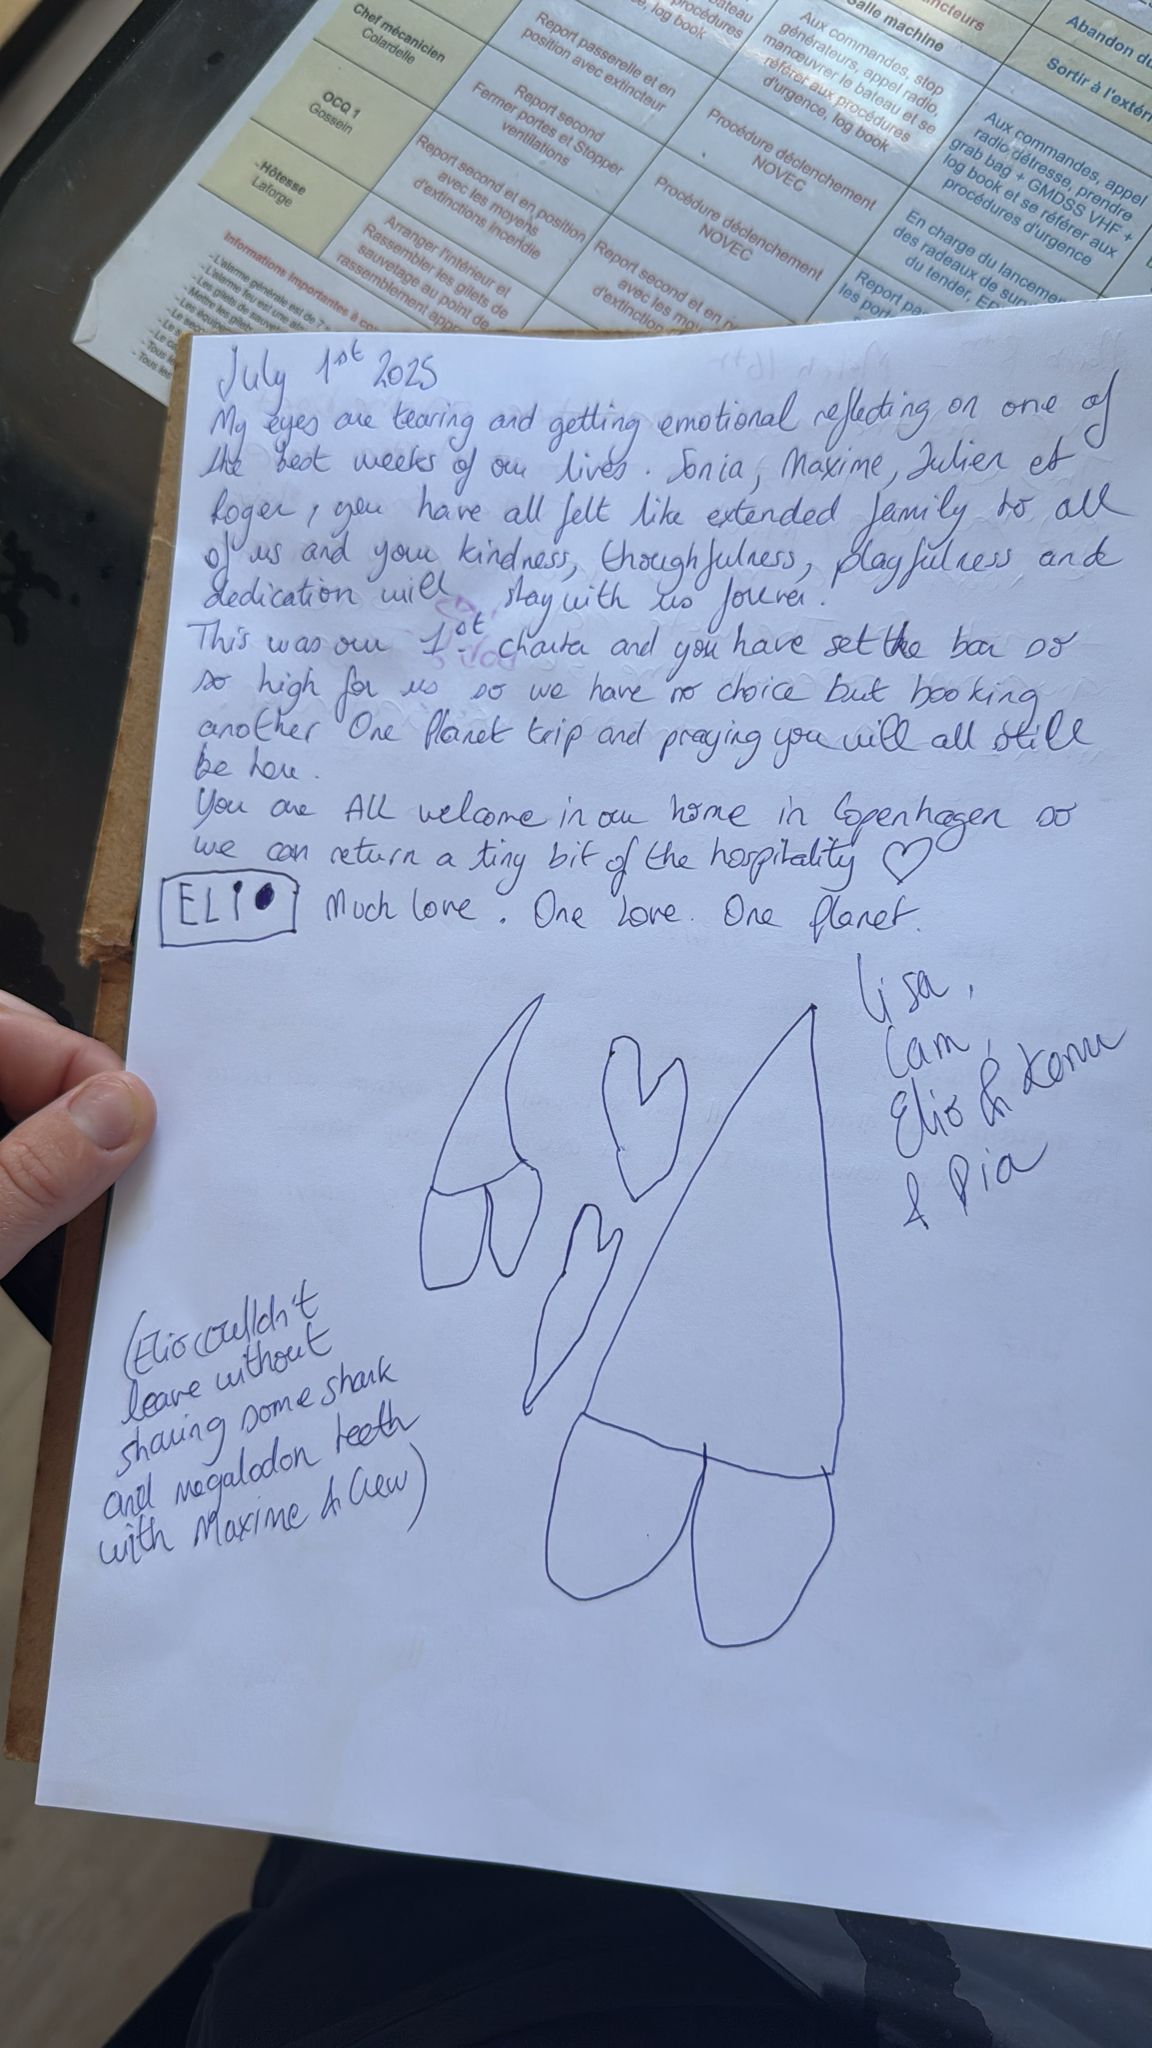 Chef mécanicien
Colardelle
Report passerelle et en
position avec extincteur
procédures
log book
Aux commandes, stop
générateurs, appel radio,
manœuvrer le bateau et se
référer aux procédures
d'urgence, log book
Salle machine
Abandon du
Sortir à l'extéri
OCQ 1
Gossein
Report second
Fermer portes et Stopper
ventilations
Procédure déclenchement
NOVEC
Aux commandes, appel
radio détresse, prendre
grab bag + GMDSS VHF +
log book et se référer aux
procédures d'urgence
Hôtesse
Laforge
Report second et en position
avec les moyens
d'extinctions incendie
Procédure déclenchement
NOVEC
En charge du lancemen
des radeaux de surv
du tender, EP
Arranger l'intérieur et
Rassembler les gilets de
sauvetage au point de
rassemblement
Report second et en
avec les
d'extinction
Report pa
les port
Informations importantes
July 1st 2025
My eyes are tearing and getting emotional reflecting on one of
the best weeks of our lives. Sonia, Maxime, Julien et
Roger, you have all felt like extended family to all
of us and your kindness, thoughfulness, playfulness and
dedication will stay with us forever.
This was our 1st charter and you have set the bar so
so high for us so we have no choice but booking
another One Planet trip and praying you will all still
be here.
You are ALL welcome in our home in Copenhagen so
we can return a tiny bit of the hospitality ♡
ELIO Much love. One Love. One Planet.
Lisa,
Cam,
Elio &
& Pia
(Elio couldn't
leave without
sharing some shark
and megalodon teeth
with Maxime & Crew)